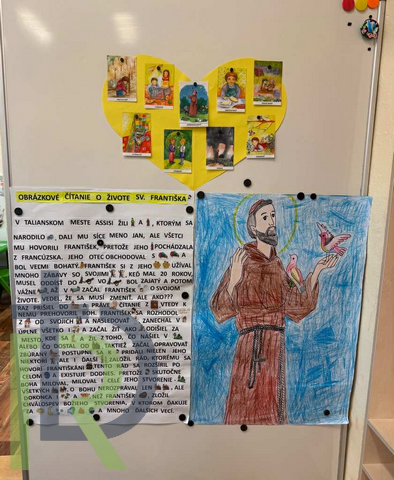 OBRÁZKOVÉ ČÍTANIE O ŽIVOTE SV. FRANTIŠKA
V TALIANSKOM MESTE ASSISI ŽILI A , KTORÝM SA
NARODILO . DALI MU SÍCE MENO JAN, ALE VŠETCI
MU HOVORILI FRANTIŠEK, PRETOŽE JEHO POCHÁDZALA
Z FRANCÚZSKA. JEHO OTEC OBCHODOVAL S
BOL VEĽMI BOHATÝ. FRANTIŠEK SI Z JEHO UŽÍVAL
MNOHO ZÁBAVY SO SVOJIMI . KEĎ MAL 20 ROKOV,
MUSEL ODÍSŤ DO . V BOL ZAJATÝ A POTOM
VÁŽNE . AŽ V ZAČAL FRANTIŠEK O SVOJOM
ŽIVOTE. VEDEL, ŽE SA MUSÍ ZMENIŤ. ALE AKO???
RAZ PRIŠIEL DO A PRÁVE ČÍTANIE Z . VTEDY K
NEMU PREHOVORIL BOH. FRANTIŠEK SA ROZHODOL
Z OD SVOJICH A NASLEDOVAŤ . ZANECHAL V
ÚPLNE VŠETKO I A ZAČAL ŽIŤ AKO . ODIŠIEL ZA
MESTO, KDE SA A ŽIL Z TOHO, ČO NAŠIEL V
ALEBO ČO DOSTAL OD . TAKTIEŽ ZAČAL OPRAVOVAŤ
ZBÚRANÝ . POSTUPNE SA K PRIDALI NIELEN JEHO
NIEKTORÍ ALE I ĎALŠÍ . ZALOŽIL RÁD, KTORÉMU SA
HOVORÍ FRANTIŠKÁNI. TENTO RÁD SA ROZŠÍRIL PO
CELOM A EXISTUJE DODNES. PRETOŽE SKUTOČNE
BOHA MILOVAL, MILOVAL I CELÉ JEHO STVORENIE -
VŠETKÝCH . O BOHU NEROZPRÁVAL LEN , ALE
DOKONCA I A . NEŽ FRANTIŠEK , ZLOŽIL
CHVÁLOSPEV BOŽIEHO STVORENIA, V KTOROM ĎAKUJE
ZA A MNOHO ĎALŠÍCH VECÍ.